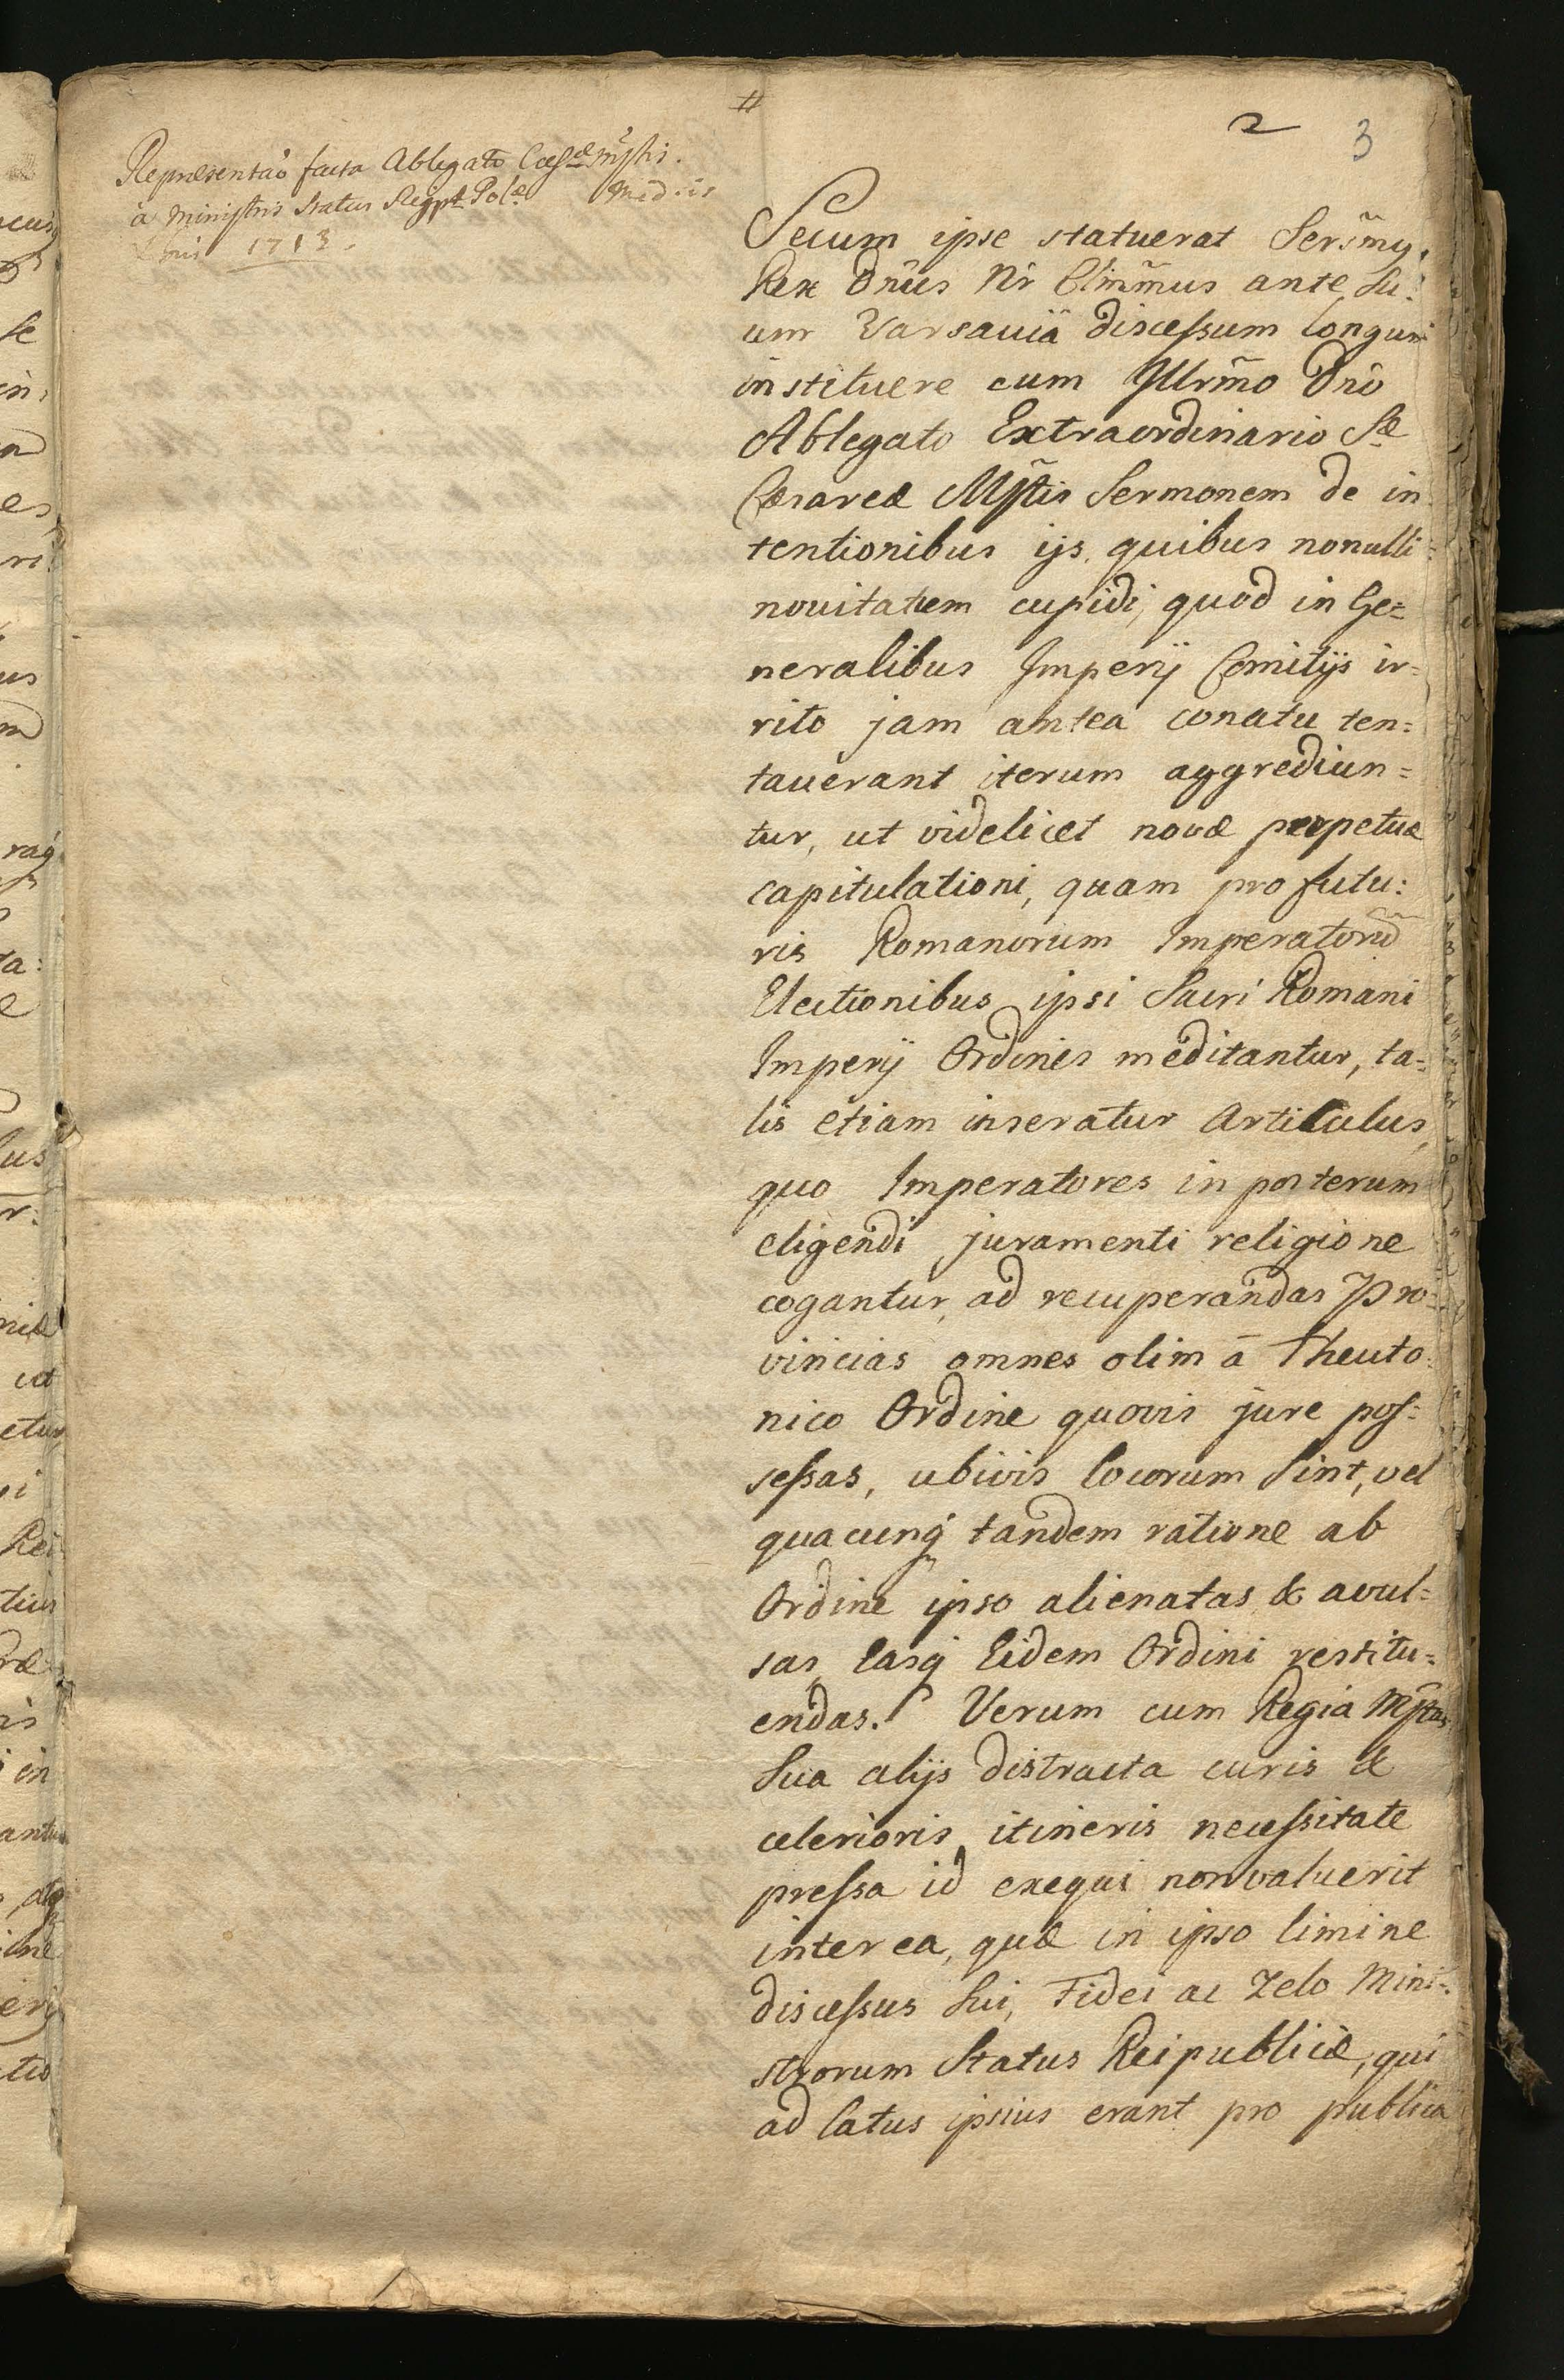 #
2 3
Repræsentao facta Ablegato Cæsæ Mjtis.
à Ministris Status Reipt Polæ
1713.
Secum ipse statuerat Sersmg.
Rex Dnus Nr Clmmus ante su:
um Varsauiâ discessum longum
instituere cum Illrmo Dno
Ablegato Extraordinario Sæ
Cæsareæ Mjtis Sermonem de in
tentionibus ijs, quibus nonulli
nouitatem cupidi, quod in Ge=
neralibus Imperij Comitijs ir=
rito jam antea conatu ten=
tauerant iterum aggrediun=
tur, ut videlicet novæ perpetuæ
capitulationi, quam pro futu:
ris Romanorum Imperatorũ
Electionibus ipsi Sacri Romani
Imperij Ordines meditantur, ta=
lis etiam inseratur Articulus,
quo Imperatores in posterum
eligendi juramenti religione
cogantur, ad recuperandas Pro=
vincias omnes olim à Theuto:
nico Ordine quovis jure pos=
sessas, ubivis locorum sint, vel
quacunq tandem ratione ab
Ordine ipso alienatas & avul=
sas, Easq Eidem Ordini restitu=
endas. Verum cum Regia Mjtas
Sua alijs distracta curis &
celerioris itineris necessitate
pressa id exequi non valuerit
interea, quæ in ipso limine
discessus sui, Fidei ac Zelo Mini=
strorum Status Reipublicæ, qui
ad latus ipsius erant pro publica